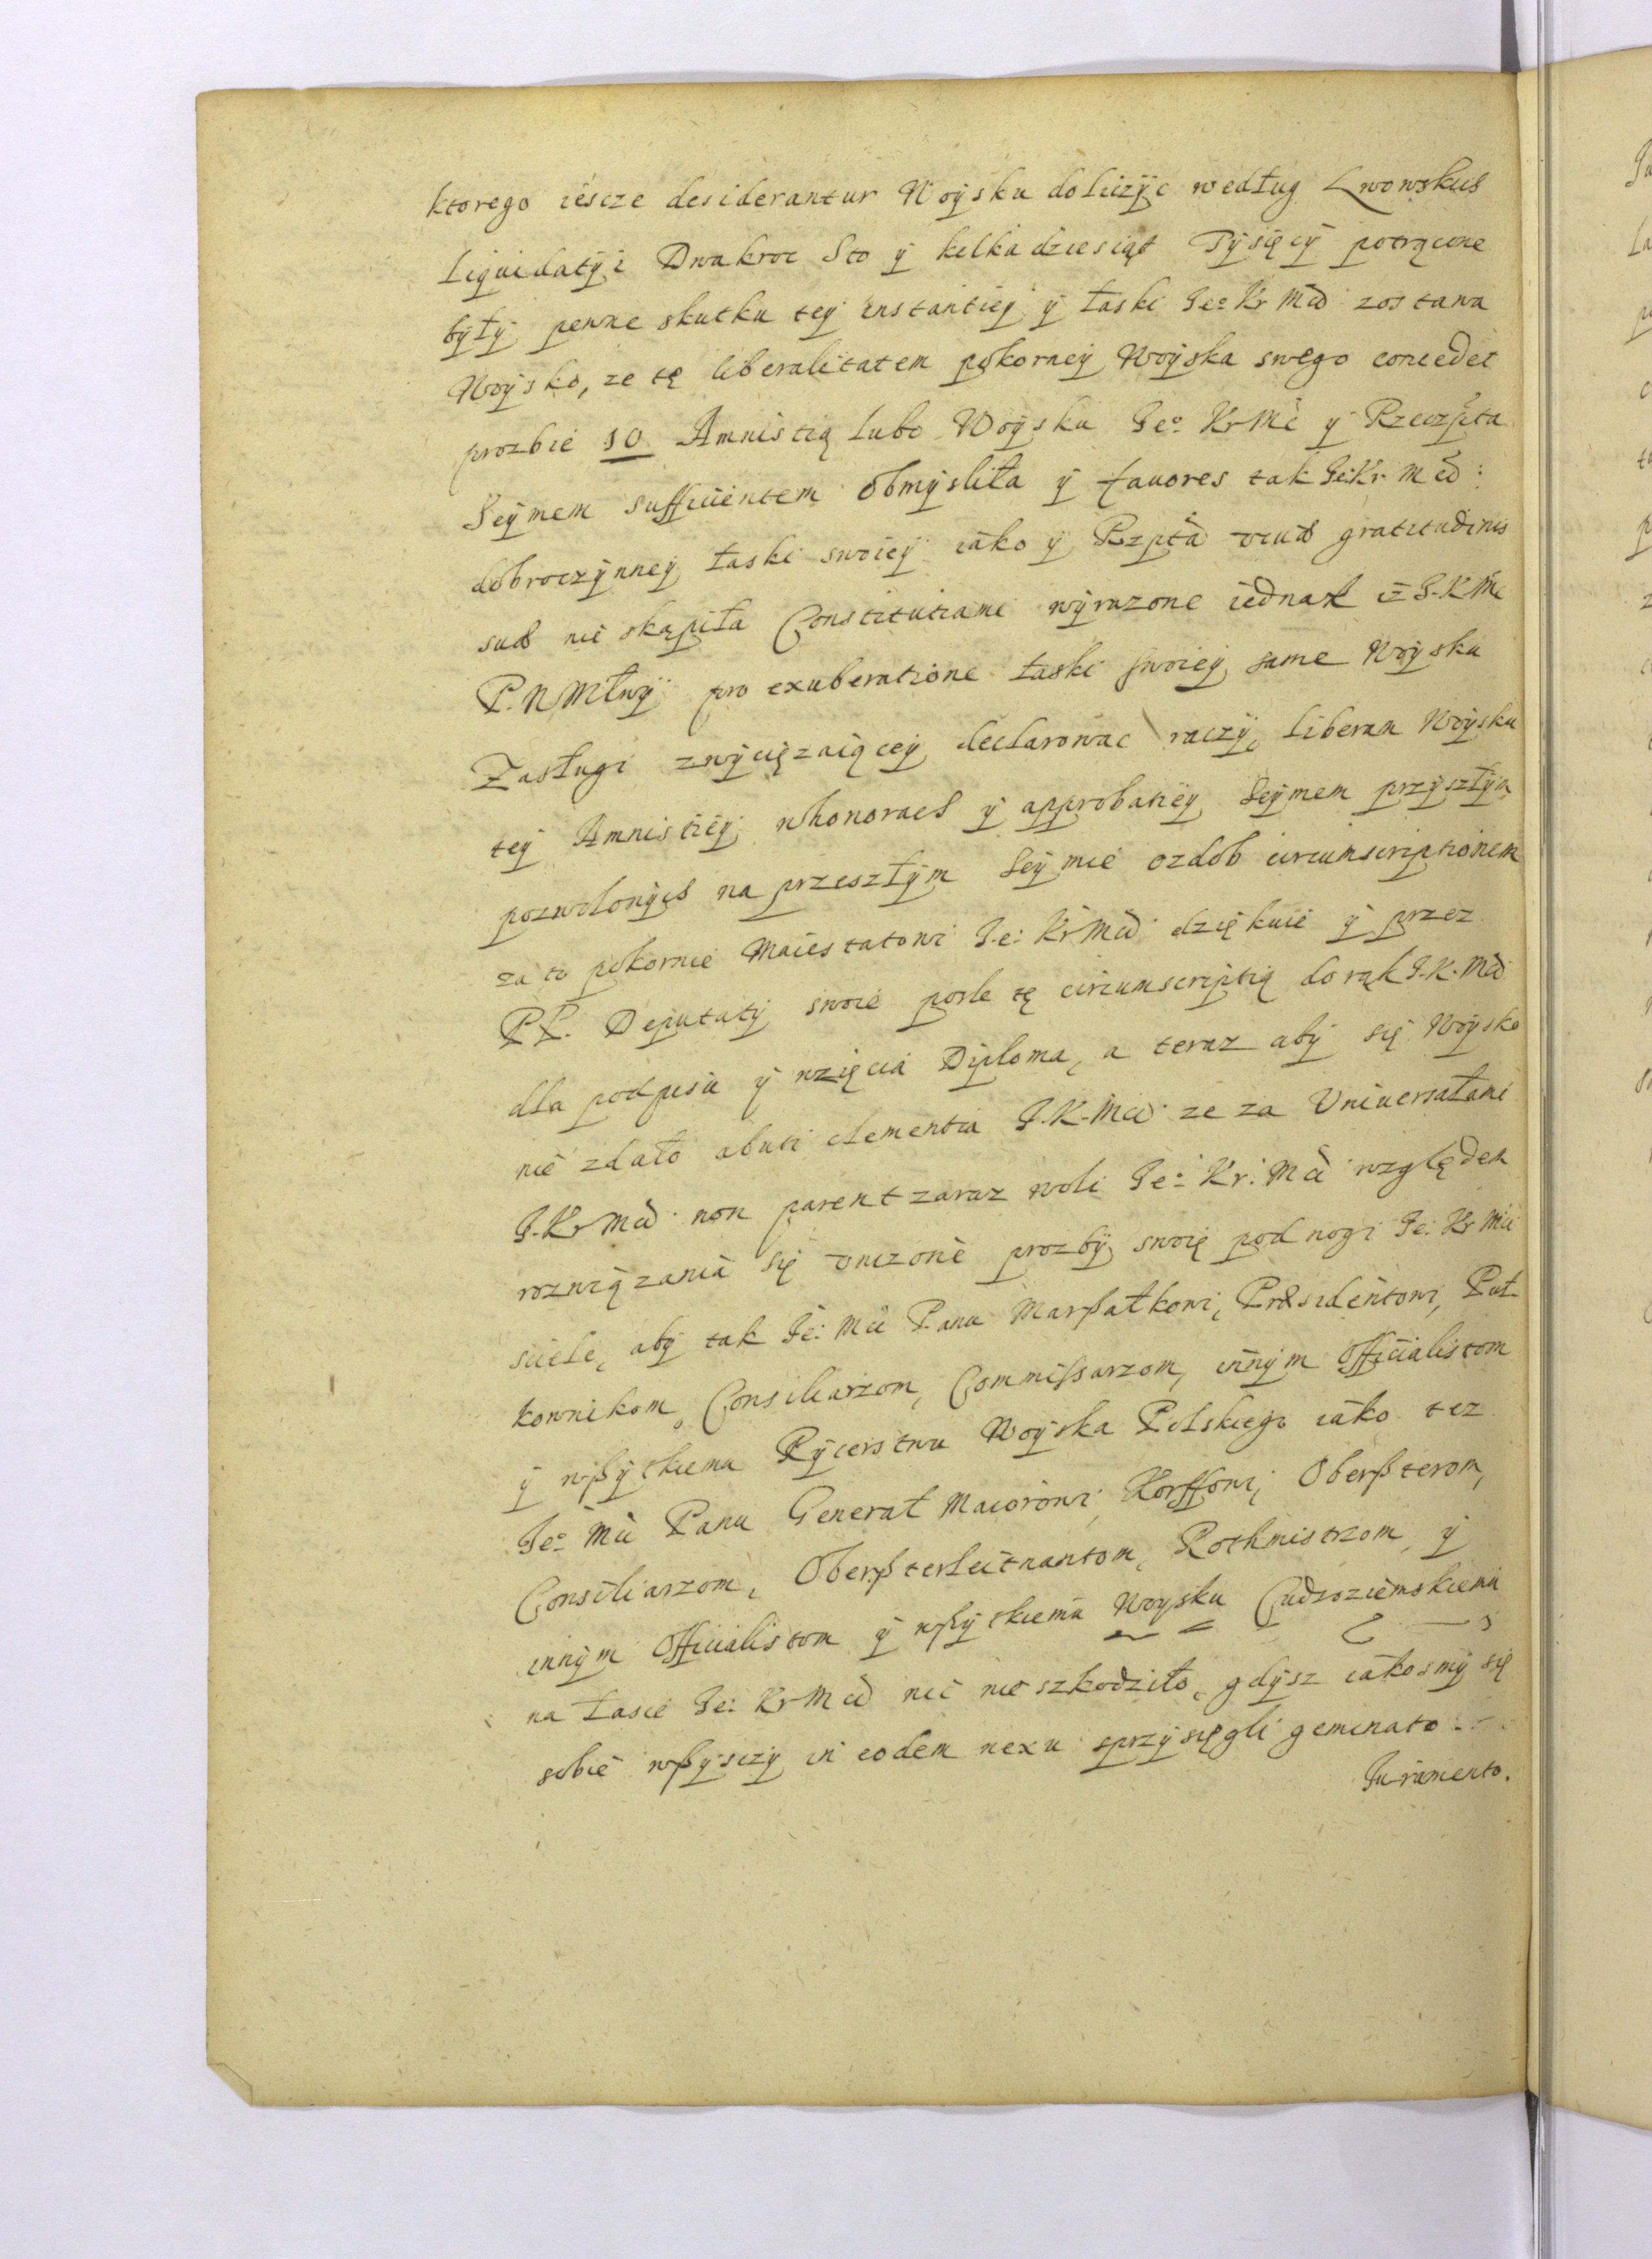 ktorego iescze desiderantur Woysku doliczyc według Lwowskich
Liquidatyi Dwakroc Sto y kilkadziesiąt Tysięcy potrącone
były pewne skutku tey instantiey y łaski Je° Kr Mci zostawa
Woysko, ze tę liberalitatem pokorney Woyska swego concedet
prozbie 10 Amnistią lubo Woysku Je° Kr Mc y Rzeczpta
Seymem sufficientem obmysliła y fauores tak Je: Kr. Mci:
dobroczynney łaski swoiey iako y Rzpta gratitudinis
suæ nie skąpiła Constitutiami wyrazone iednak iz J.K Mc
P. N Młwy pro exuberatione łaski swoiey same Woyska
Zasługi zwycięzaiącey declarowac raczy, liberam Woysku
tey Amnistiey whonorach y approbatiey Seymem przyszłym
pozwolonych na przeszłym Seymie ozdob circumscriptionem
za to pokornie Maiestatowi Je: Kr Mci dziękuie y przez
PP. Deputaty swoie posle tę circumscriptią do rąk J.K.Mci
dla podpisu y wzięcia Diploma, a teraz aby się Woysko
nie zdało abuti clementia J.K.Mci ze za Vniuersałami
J.Kr Mci non parent zaraz woli Je: Kr: Mci względem
rozwiązania się vnizone prozby swoię pod nogi Je: Kr Mci
sciele, aby tak Je: Mci Panu Marszałkowi, Præsidentowi, Puł-
kownikom, Consiliarzom, Commissarzom, innym Officialistom
y wszytkiemu Rycerstwu Woyska Polskiego iako tez
Je° Mci Panu Generał Maiorowi Korffowi, Obersterom,
Consiliarzom, Obersterleitnantom, Rothmistrzom, y
innym Officialistom y wszytkiemu Woysku Cudzoziemskiemu
na łasce Je: Kr Mci nic nie szkodziło, gdysz iakosmy się
sobie wszyscy in eodem nexu sprzysięgli geminato
Juramento.